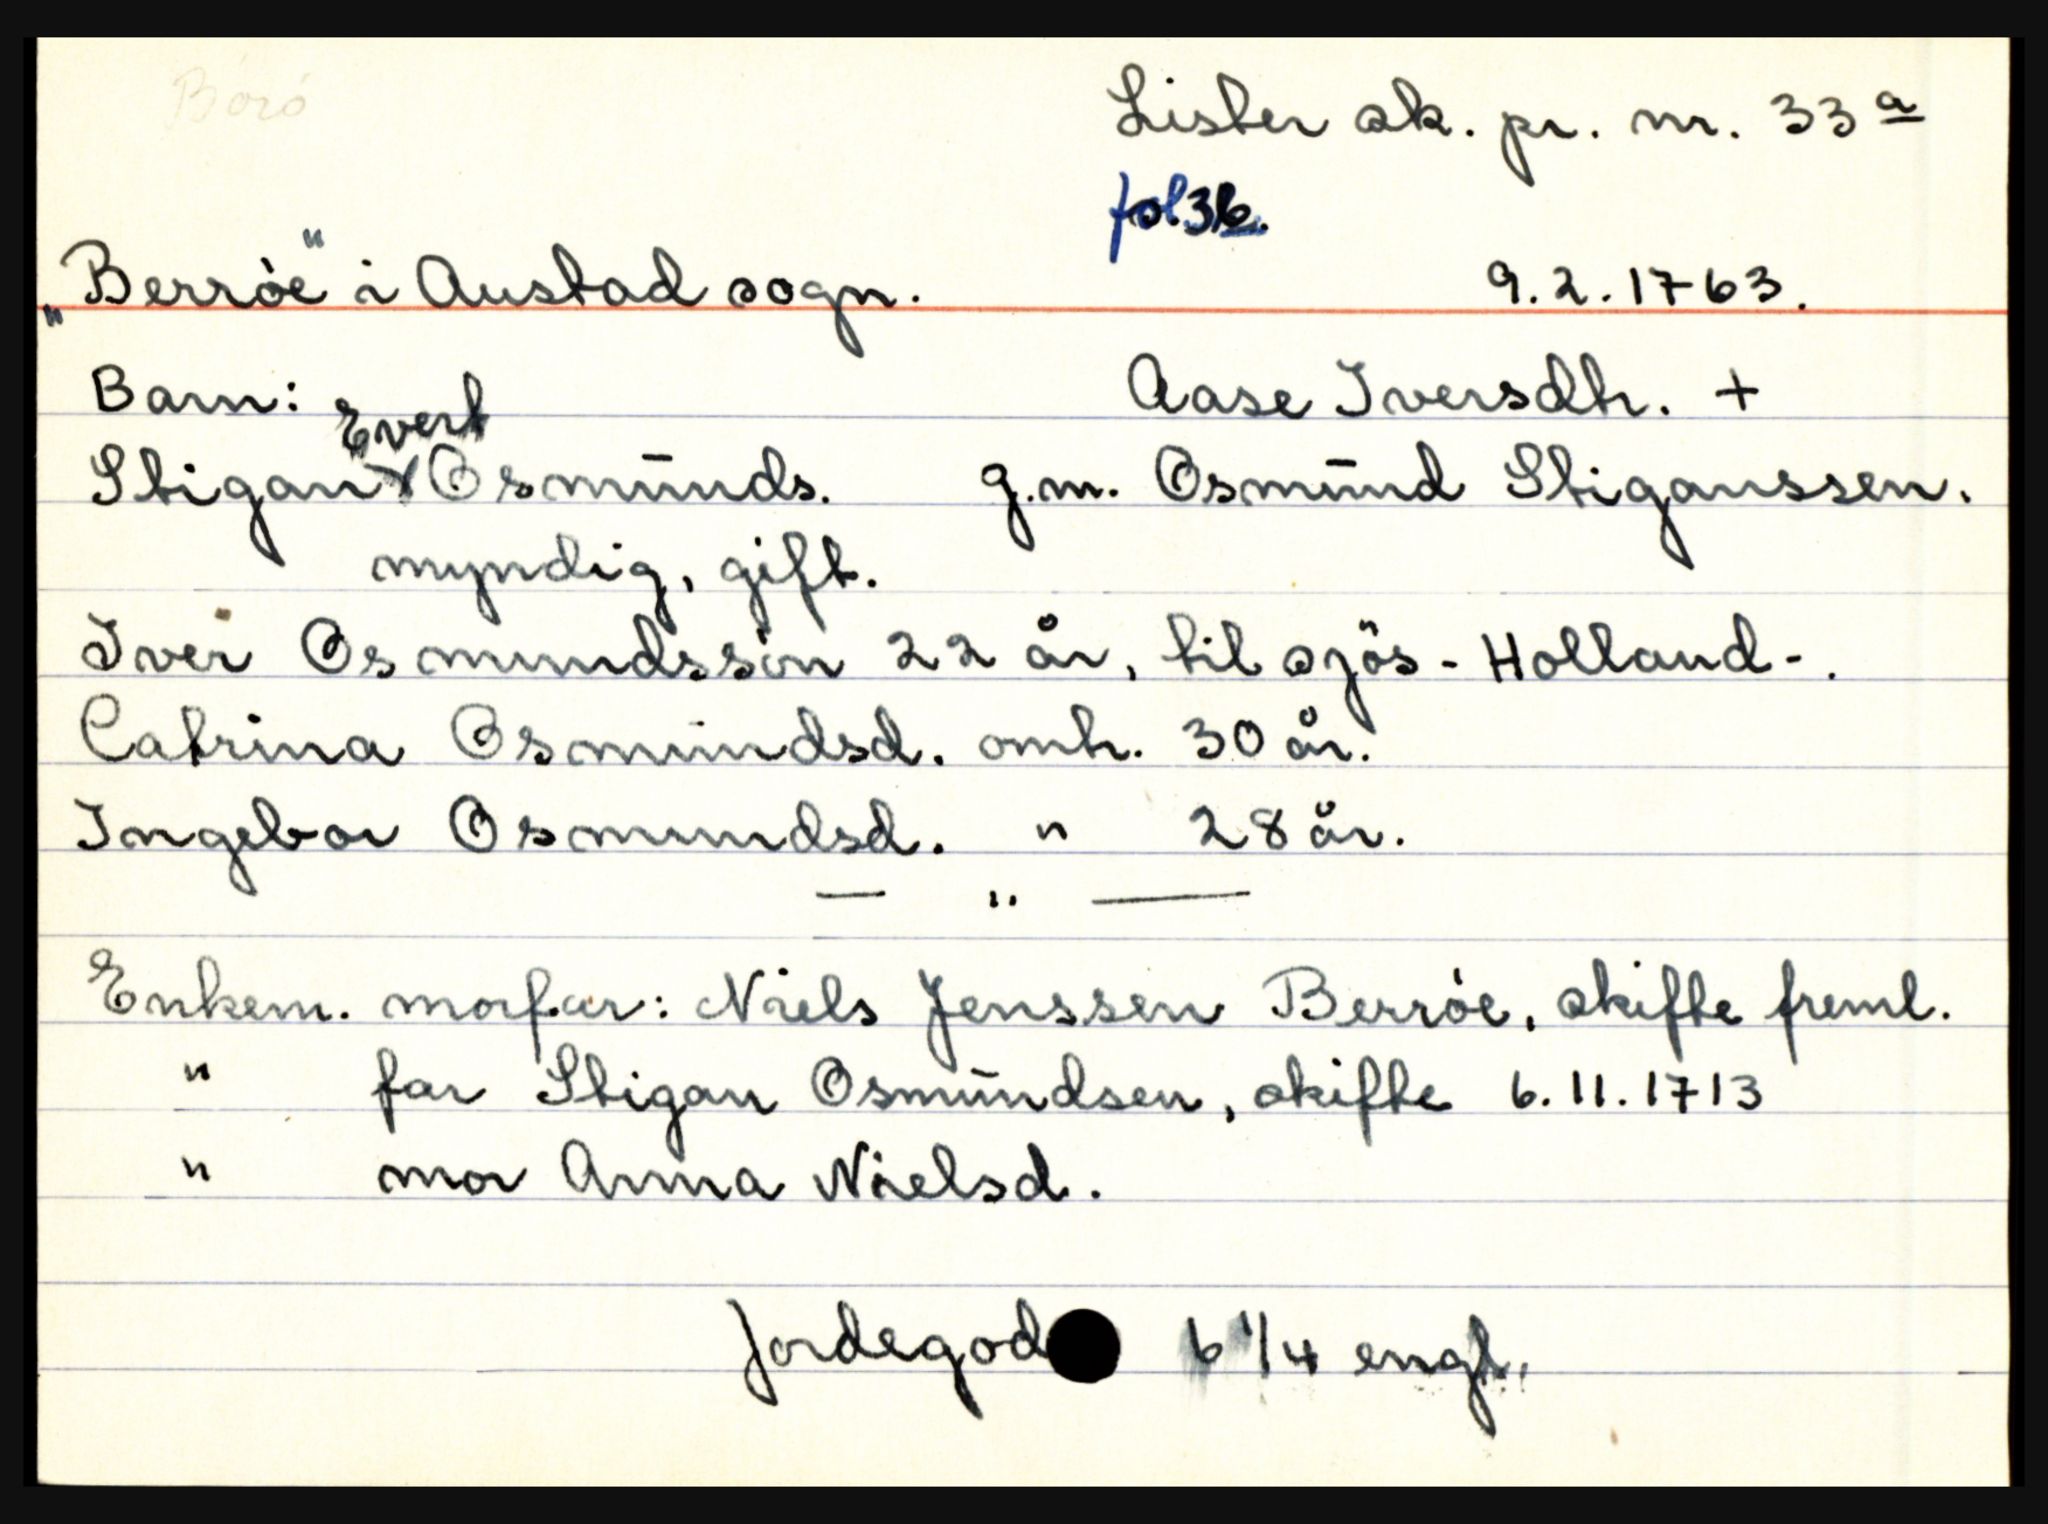 Börö
Lister sk. pr. nr. 33 a
fol. 3b.
"Berröe" i Austad sogn. 9.2.1763.
Barn: Aase Iversdtr. +
Evert
Stigan Osmūnds. g.m. Osmūnd Stiganssen.
myndig, gift.
Iver Osmundssön 22 år, til sjös - Holland -.
Catrina Osmundsd. omtr. 30 år.
Ingebor Osmundsd. " 28 år.
— " —
Enkem. morfar: Niels Jenssen Berröe, skifte freml.
" far Stigan Osmūndsen, skifte 6.11.1713
" mor Anna Nielsd.
Jordegod 6 1/4 engl.